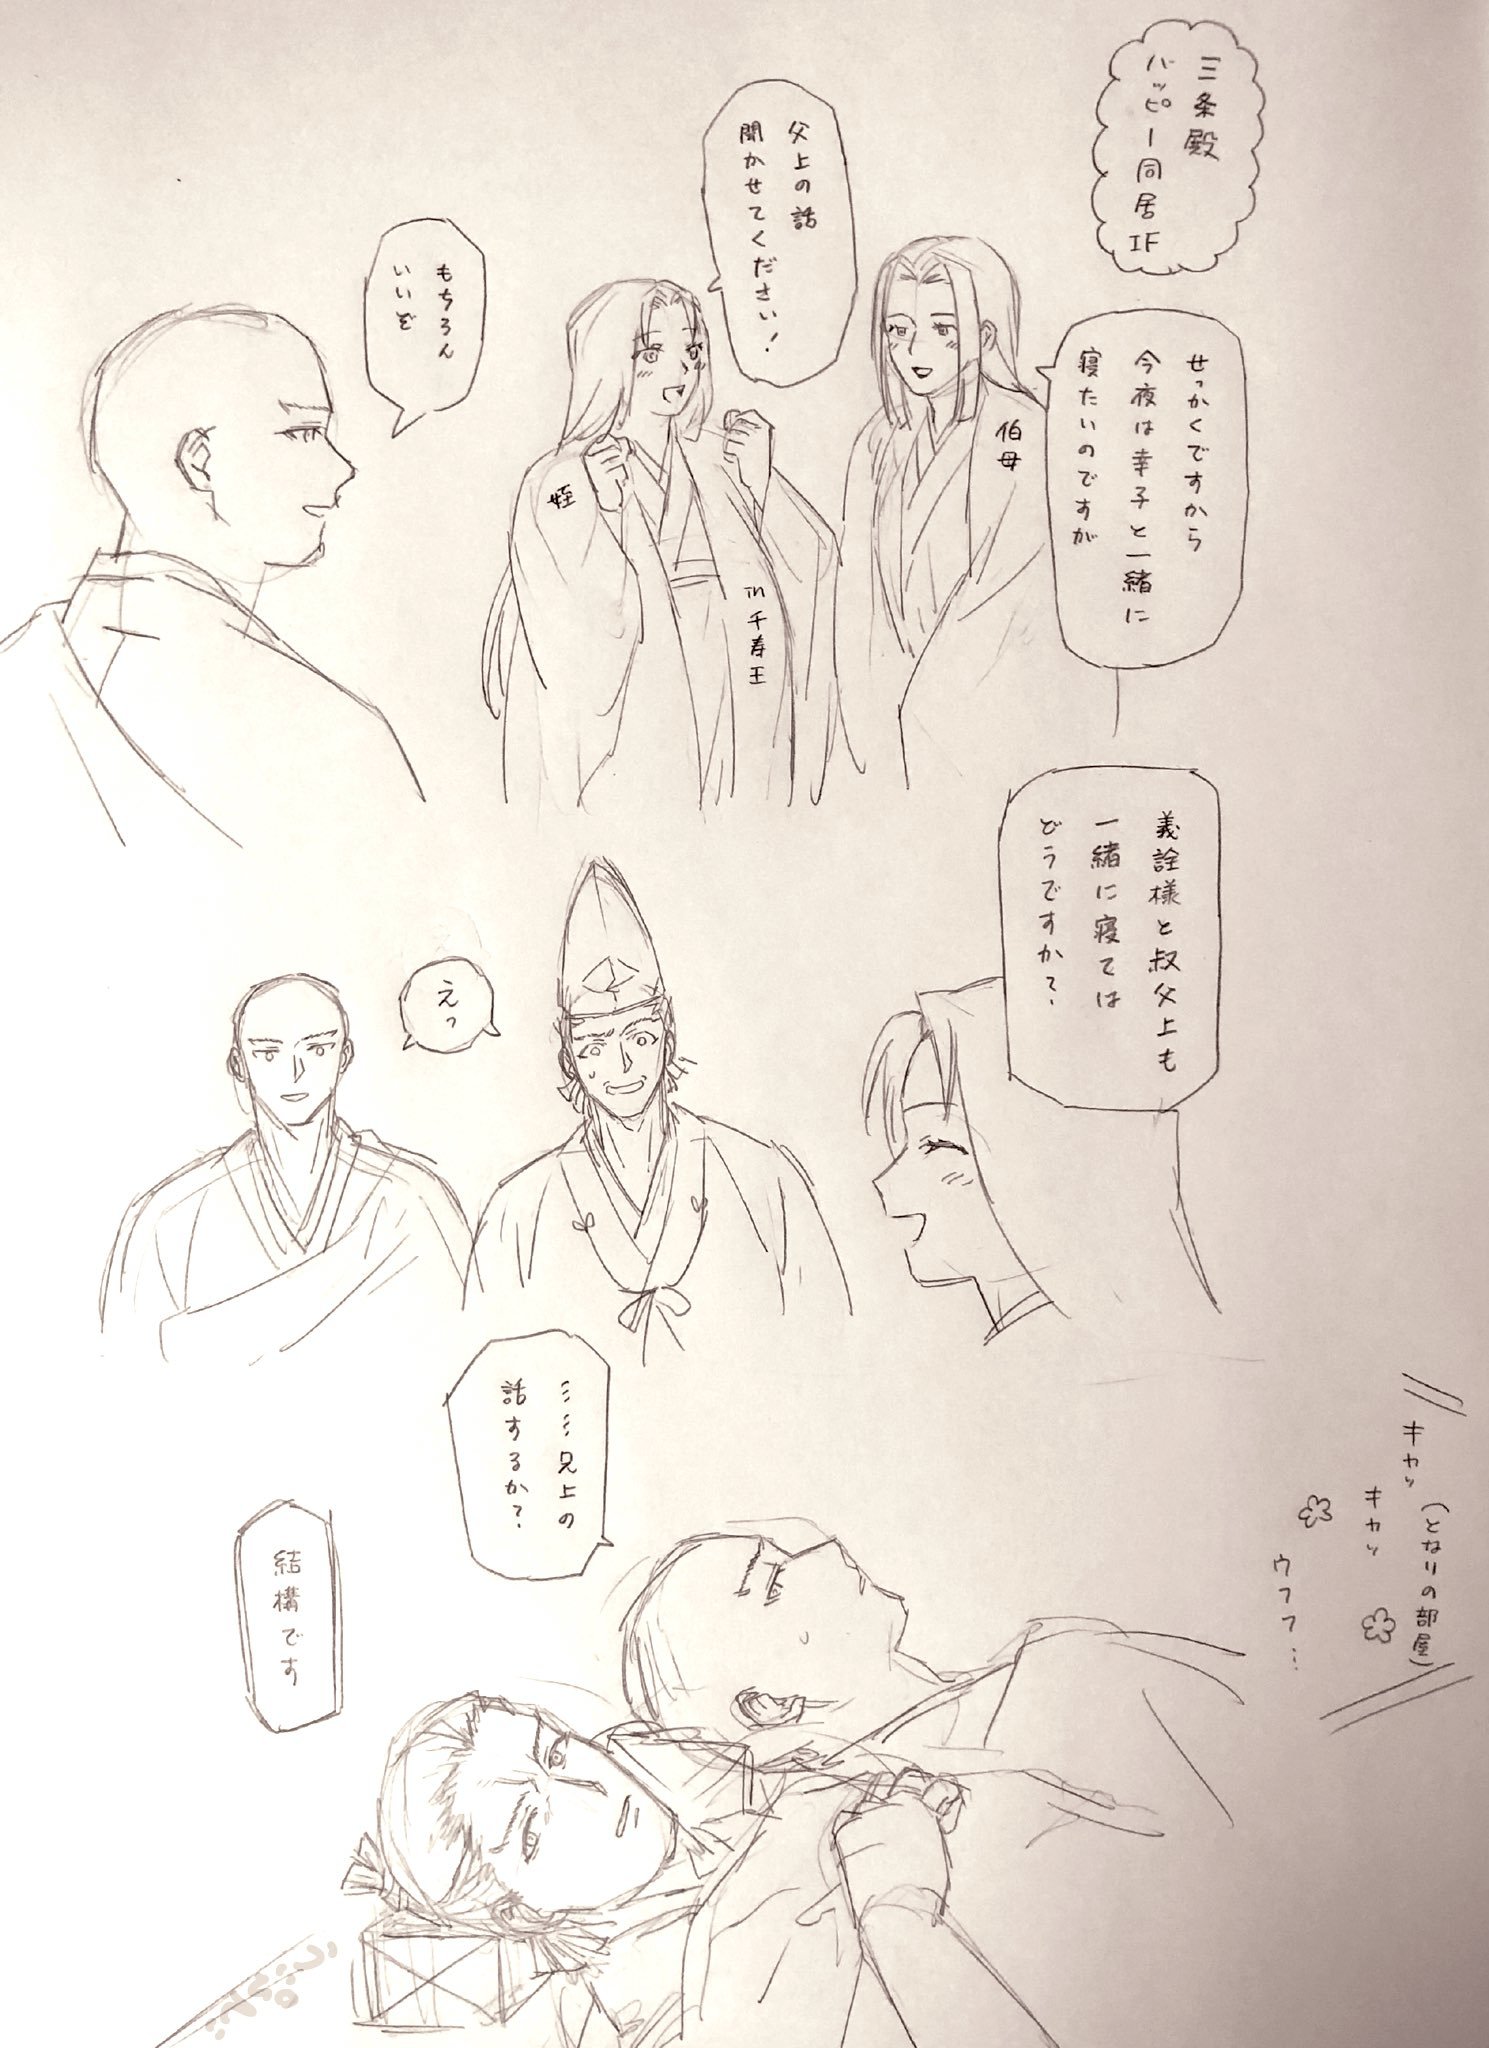 三条殿
ハッピー同居IF
せっかくですから
今夜は幸子と一緒に
寝たいのですが
伯母
父上の話
聞かせてください!
姪
in千寿王
もちろん
いいぞ
義詮様と叔父上も
一緒に寝ては
どうですか?
えっ
(となりの部屋)
キャッ
キャッ
ウフフ…
……兄上の
話するか?
結構です